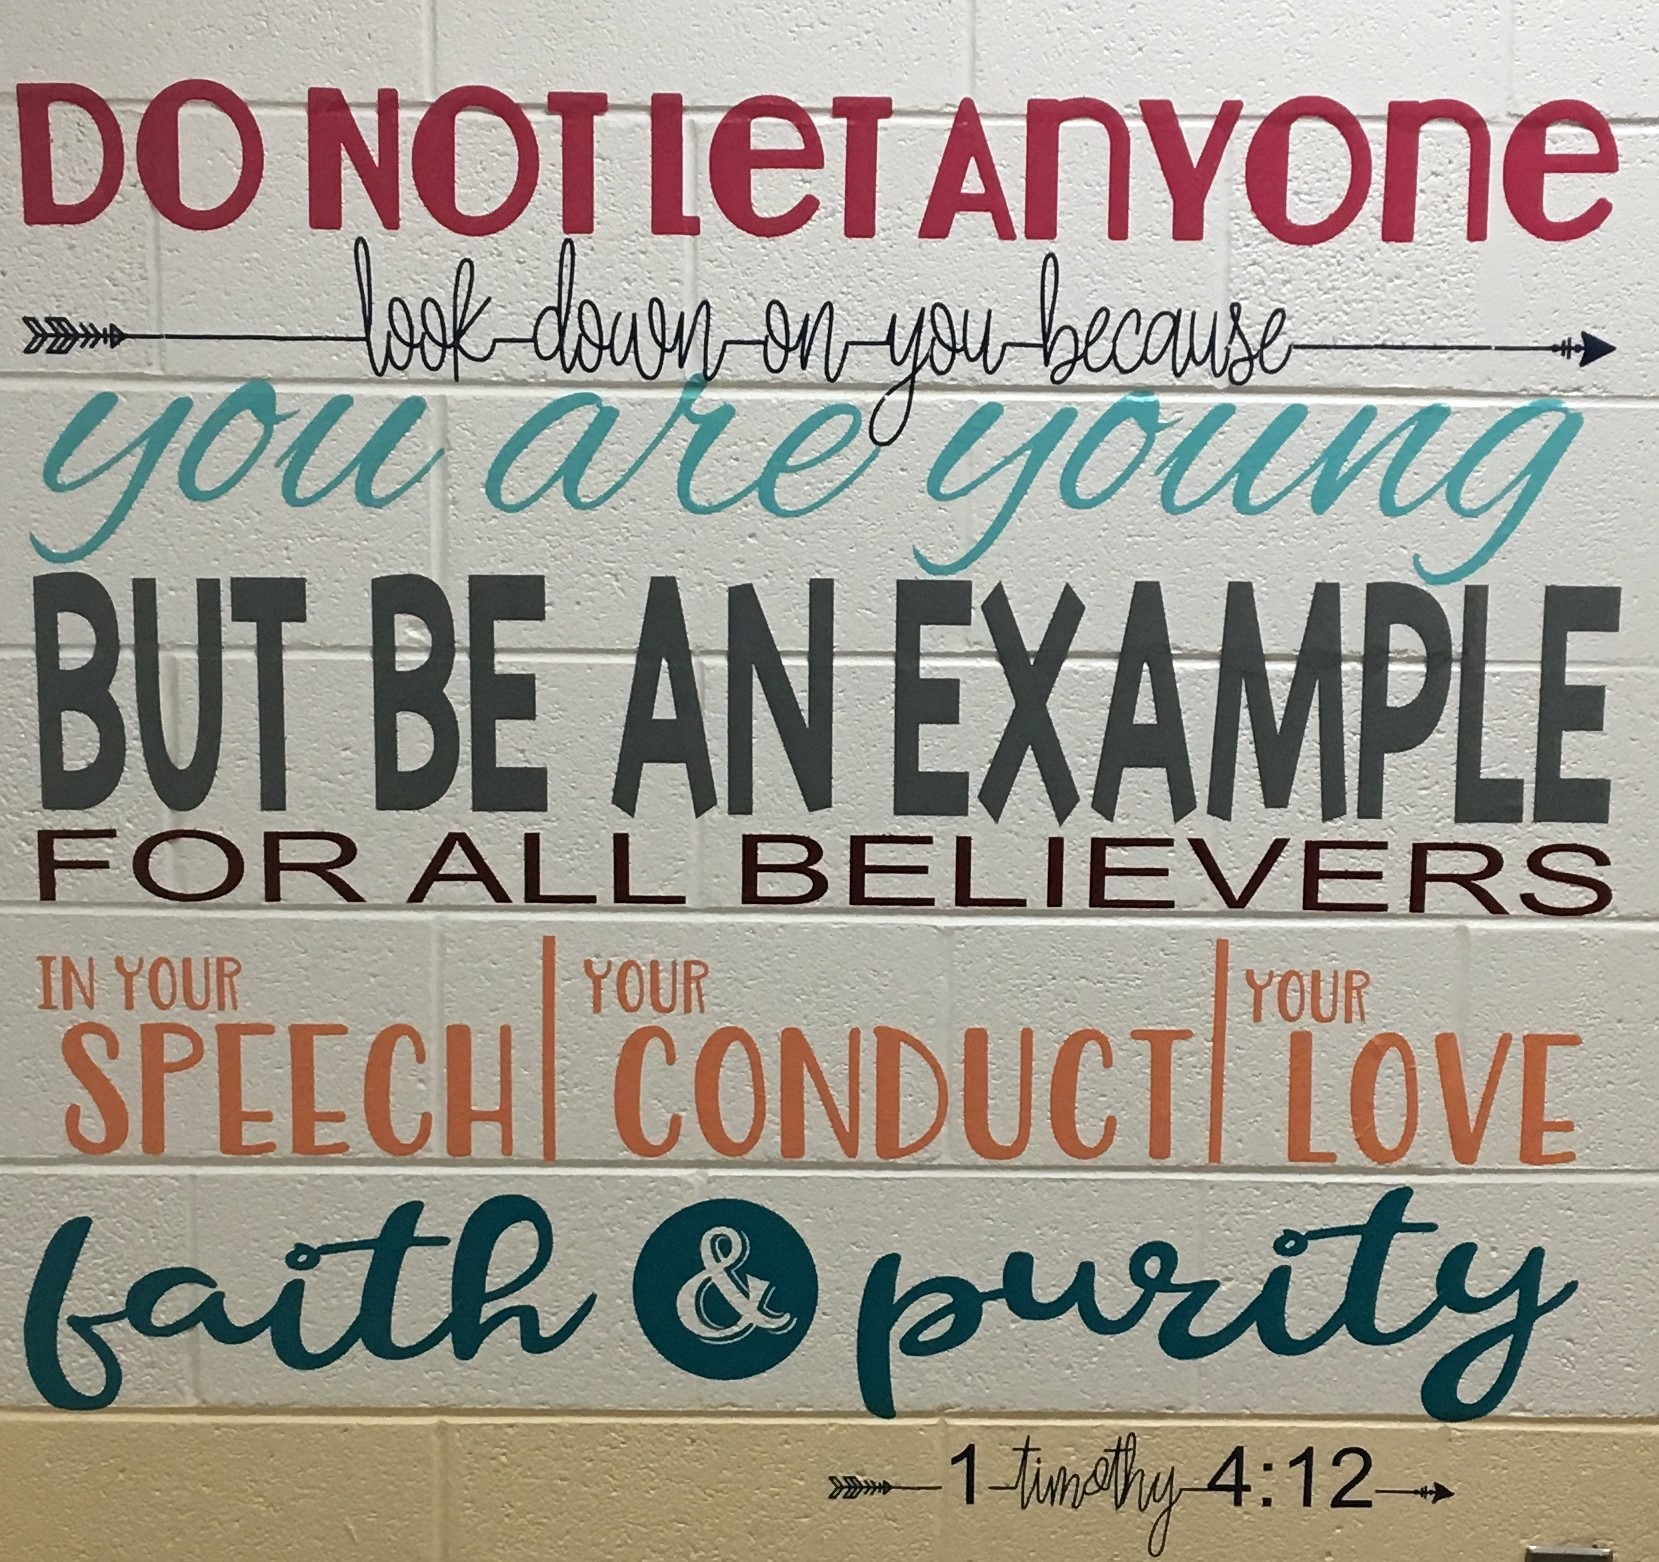 DO NOT Let ANYONE
look down on you because
you are young
BUT BE AN EXAMPLE
FOR ALL BELIEVERS
IN YOUR SPEECH | YOUR CONDUCT | YOUR LOVE
faith & purity
1 timothy 4:12